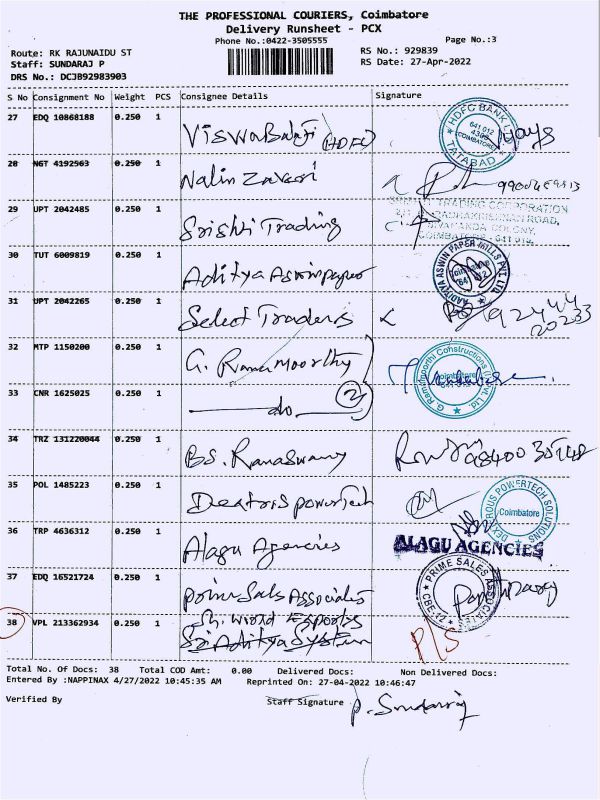 THE PROFESSIONAL COURIERS, Coimbatore
Delivery Runsheet - PCX
Phone No.:0422-3505555
Page No.:3
Route: RK RAJUNAIDU ST
RS No.: 929839
Staff: SUNDARAJ P
RS Date: 27-Apr-2022
DRS No.: DCJB92983903
S No Consignment No Weight PCS Consignee Details Signature
27 EDQ 10868188 0.250 1 Viswa Balaji (HDFC)
HDFC BANK 641 012 COIMBATORE TATABAD
28 NGT 4192563 0.250 1 Nalin Zaveri
29 UPT 2042485 0.250 1 Srishti Trading
TRADING CORPORATION
COIMBATORE - 641
30 TUT 6009819 0.250 1 Aditya Aswin paper
AADITYA ASWIN PAPER MILLS PVT LTD.
31 UPT 2042265 0.250 1 Select Traders
32 MTP 1150200 0.250 1 G. Rama Moorthy
G. Ramamoorthi Constructions (I) Pvt. Ltd. Coimbatore
33 CNR 1625025 0.250 1 do (2)
34 TRZ 131220044 0.250 1 B.S. Ramaswamy
35 POL 1485223 0.250 1 Dextrous powerTech
DEXTROUS POWERTECH SOLUTIONS Coimbatore
36 TRP 4636312 0.250 1 Alagu Agencies
ALAGU AGENCIES
37 EDQ 16521724 0.250 1 prime Sales Associates
PRIME SALES ASSOCIATES CBE-12
38 VPL 213362934 0.250 1
Sri Aditya System
P/S
Total No. Of Docs: 38 Total COD Amt: 0.00 Delivered Docs: Non Delivered Docs:
Entered By :NAPPINAX 4/27/2022 10:45:35 AM Reprinted On: 27-04-2022 10:46:47
Verified By Staff Signature P. Sundaraj